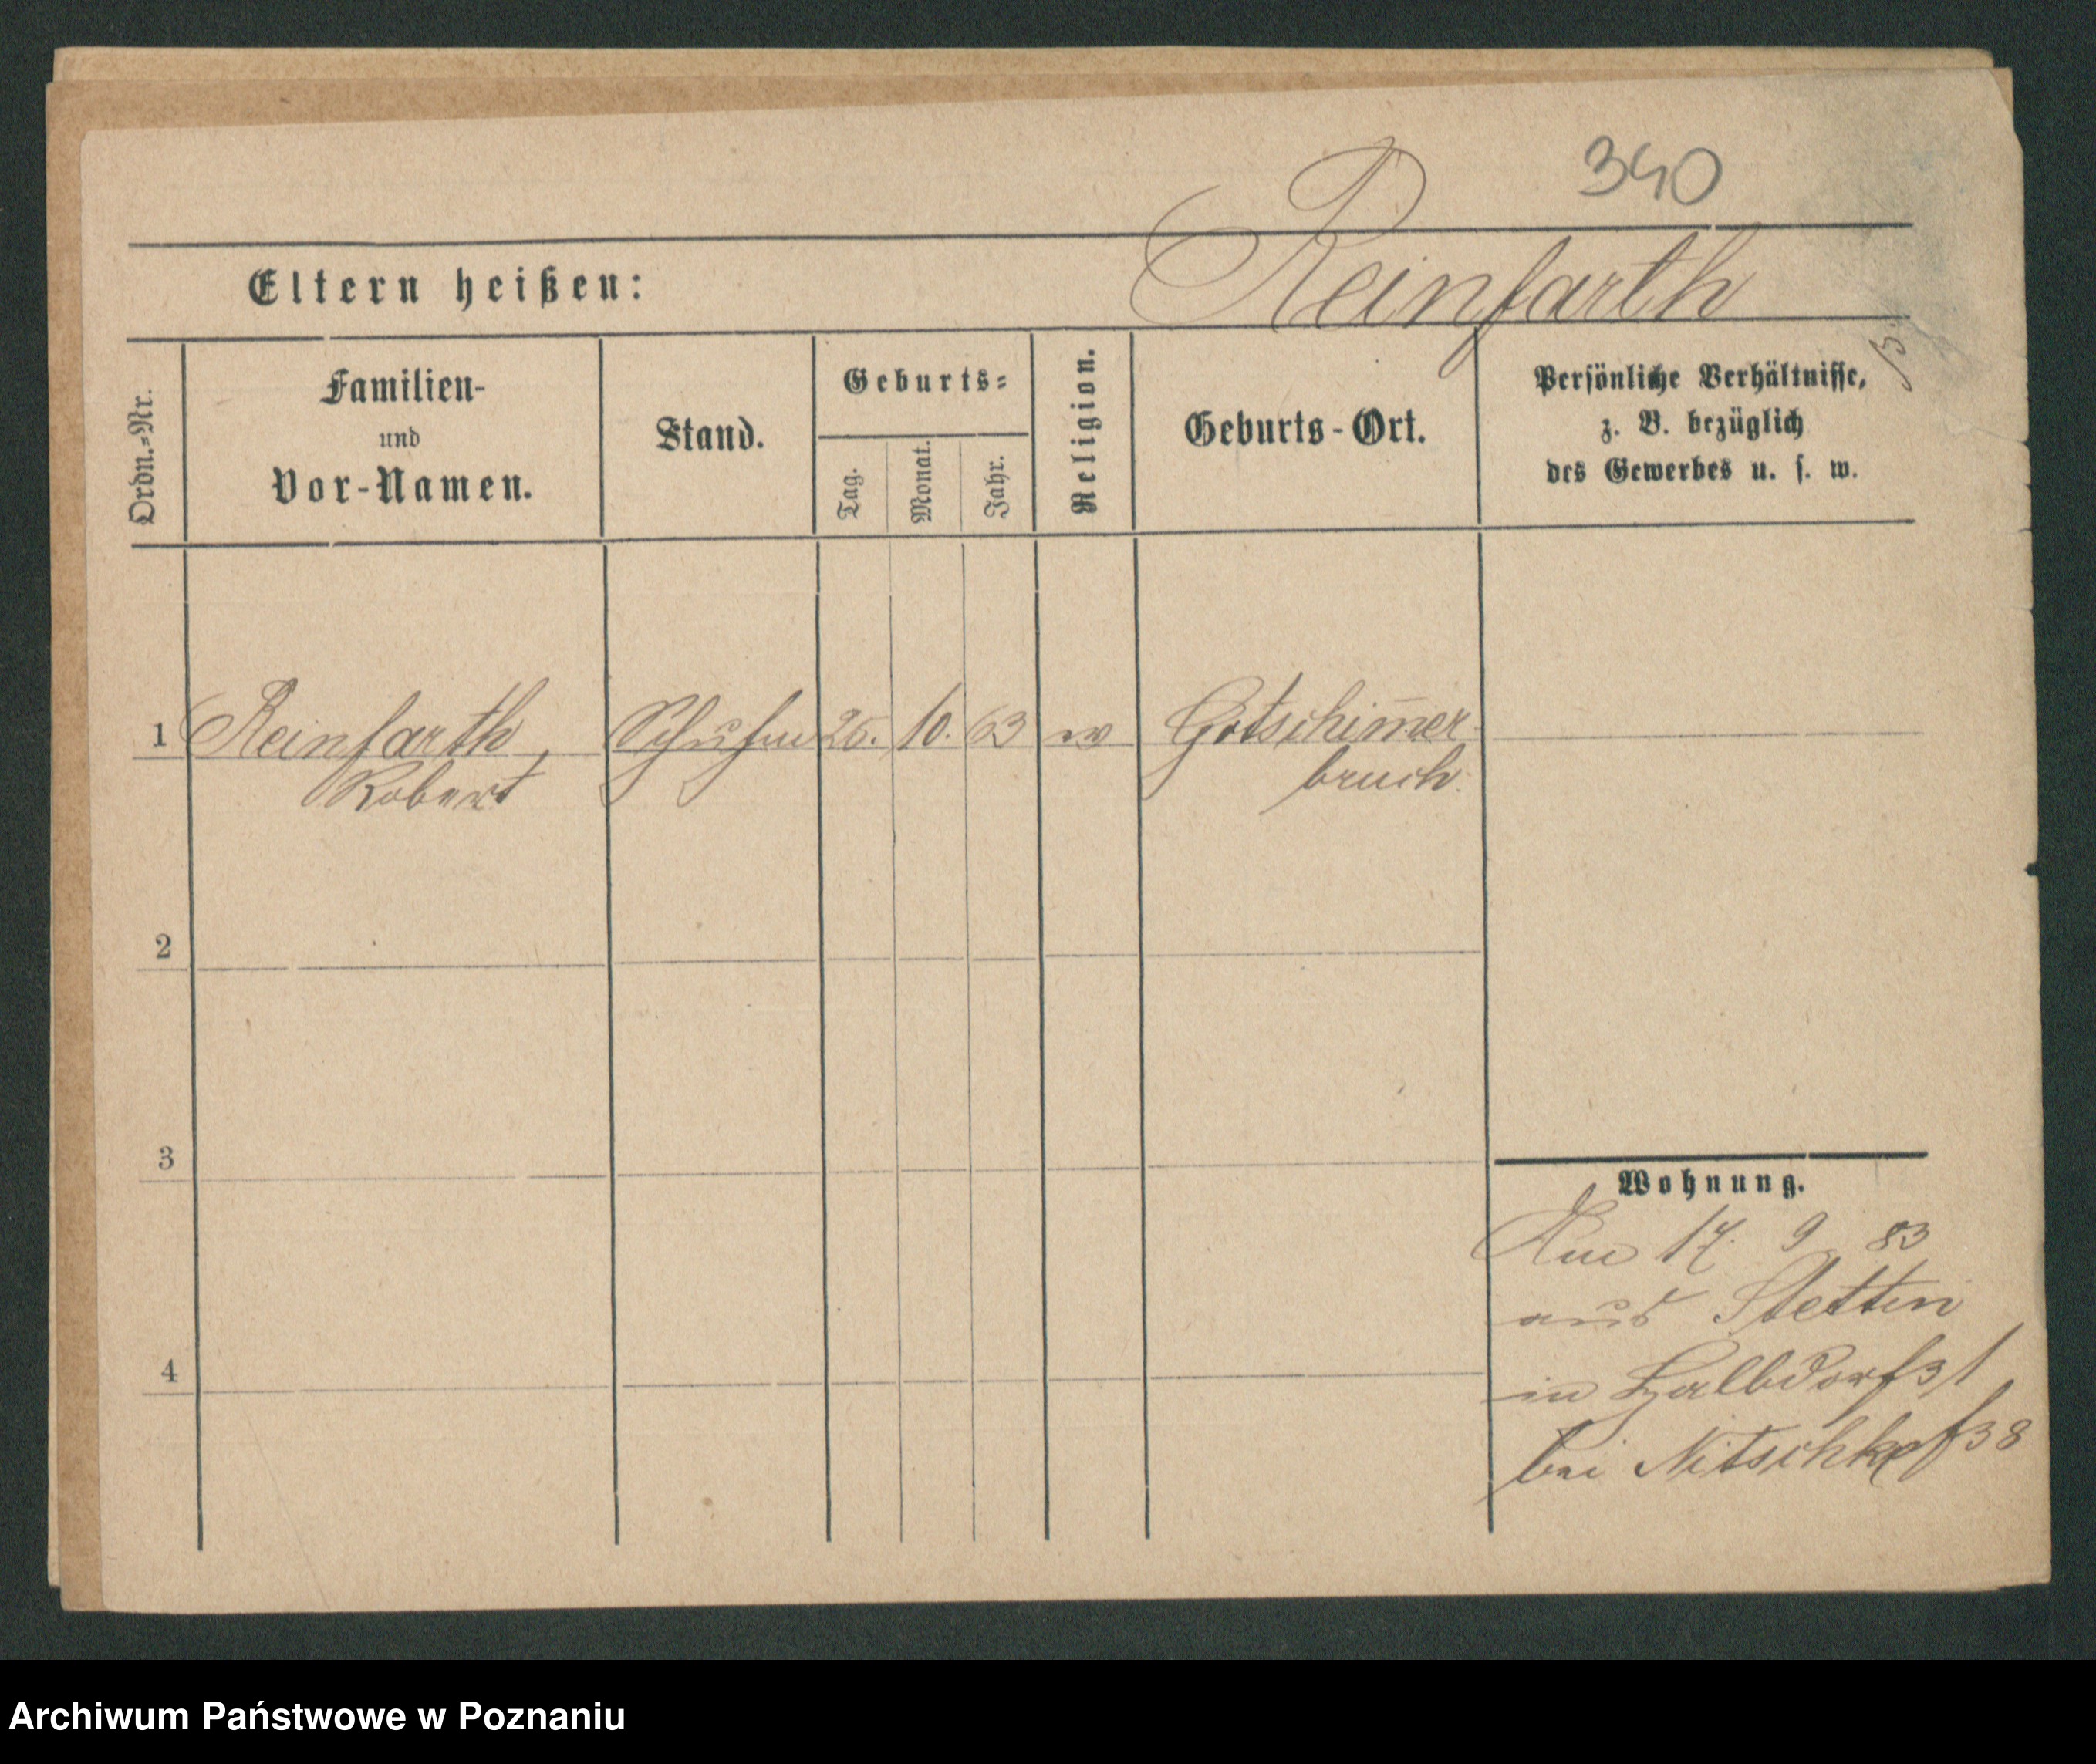 340
Reinfarth
Eltern heißen:
Ordn.=Nr.
Familien-
und
Vor-Namen.
Stand.
Geburts=
Tag.
Monat.
Jahr.
Religion.
Geburts-Ort.
Persönliche Verhältnisse,
z. B. bezüglich
des Gewerbes u. s. w.
1 Reinfarth, 10. 63 ev Gotschim̄er
Robert bruch.
2
3
4
Wohnung.
17. 9 83
aus Stettin
in Halbdorfs 31
bei Nitschke 38
Archiwum Państwowe w Poznaniu